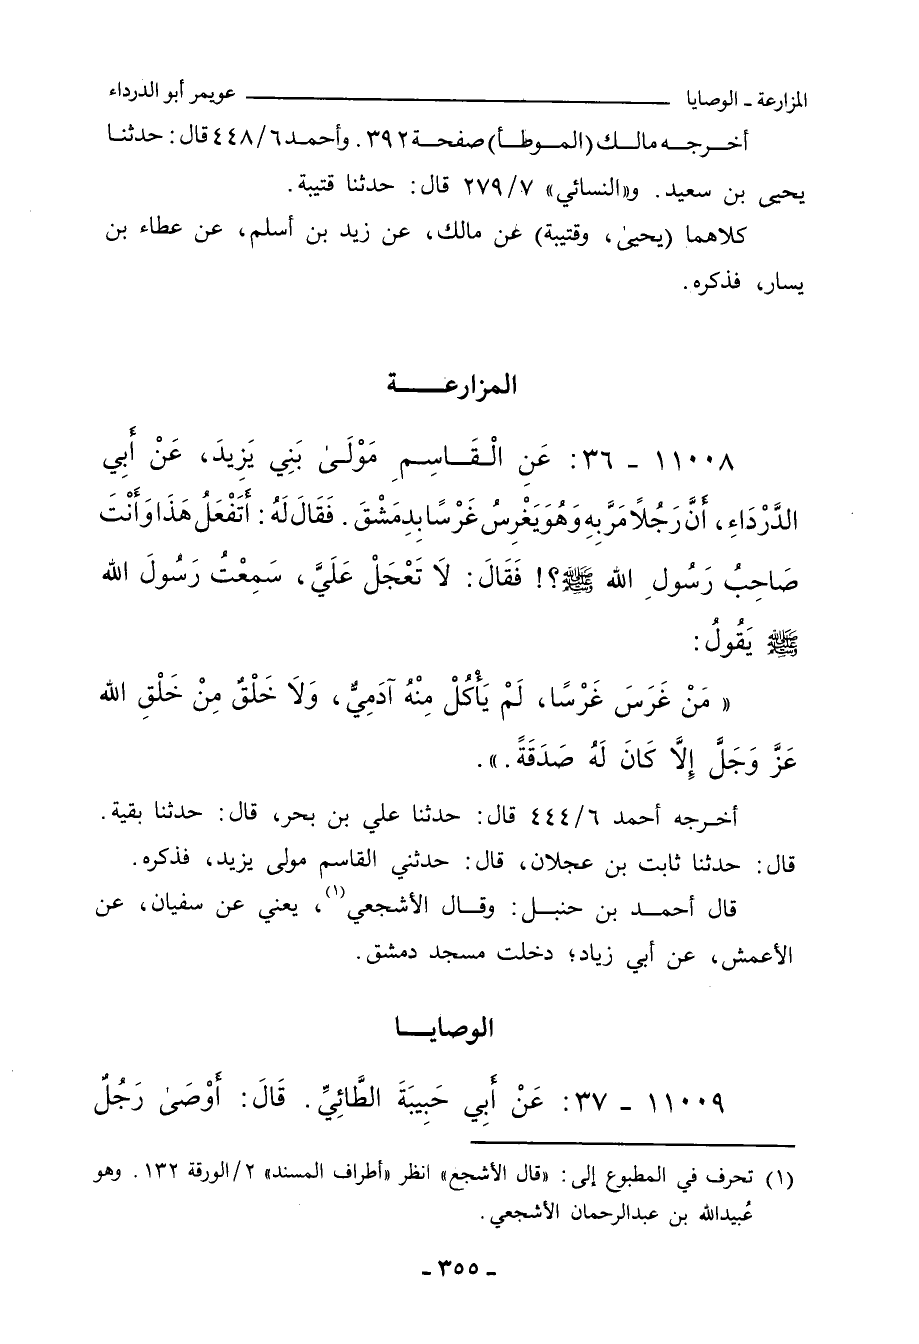 المزارعة - الوصايا ــــــــــ عويمر أبو الدرداء
أخرجه مالك (الموطأ) صفحة ٣٩٢. وأحمد ٤٤٨/٦ قال: حدثنا
يحيى بن سعيد. و«النسائي» ٢٧٩/٧ قال: حدثنا قتيبة.
كلاهما (يحيىٰ، وقتيبة) عن مالك، عن زيد بن أسلم، عن عطاء بن
يسار، فذكره.
المزارعـــة
١١٠٠٨ - ٣٦: عَنِ الْقَاسِمِ مَوْلَىٰ بَنِي يَزِيدَ، عَنْ أَبِي
الدَّرْدَاءِ، أَنَّ رَجُلاً مَرَّ بِهِ وَهُوَ يَغْرِسُ غَرْسًا بِدِمَشْقَ. فَقَالَ لَهُ: أَتَفْعَلُ هَذَا وَأَنْتَ
صَاحِبُ رَسُولِ الله ﷺ؟! فَقَالَ: لَا تَعْجَلْ عَلَيَّ، سَمِعْتُ رَسُولَ الله
ﷺ يَقُولُ:
« مَنْ غَرَسَ غَرْسًا، لَمْ يَأْكُلْ مِنْهُ آدَمِيٌّ، وَلَا خَلْقٌ مِنْ خَلْقِ الله
عَزَّ وَجَلَّ إِلاَّ كَانَ لَهُ صَدَقَةً. ».
أخرجه أحمد ٤٤٤/٦ قال: حدثنا علي بن بحر، قال: حدثنا بقية.
قال: حدثنا ثابت بن عجلان، قال: حدثني القاسم مولى يزيد، فذكره.
قال أحمد بن حنبل: وقال الأشجعي(١)، يعني عن سفيان، عن
الأعمش، عن أبي زياد؛ دخلت مسجد دمشق.
الوصايـــا
١١٠٠٩ - ٣٧: عَنْ أَبِي حَبِيبَةَ الطَّائِيِّ. قَالَ: أَوْصَىٰ رَجُلٌ
(١) تحرف في المطبوع إلى: «قال الأشجع» انظر «أطراف المسند» ٢/الورقة ١٣٢. وهو
عُبيدالله بن عبدالرحمان الأشجعي.
- ٣٥٥ -